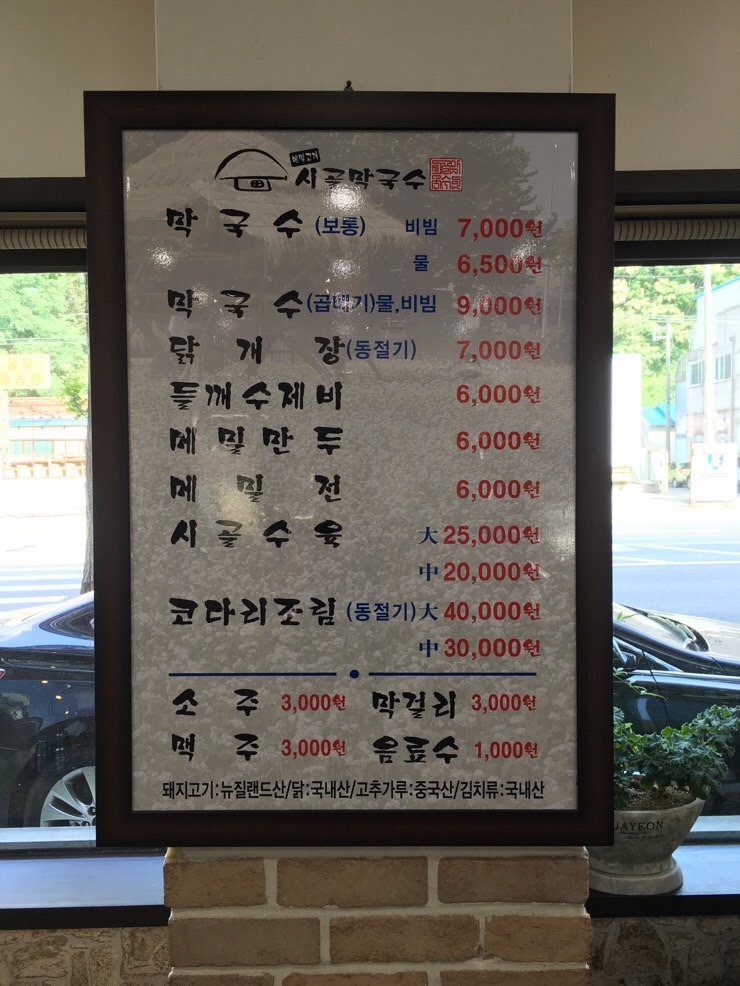 시골막국수
막국수 (보통) 비빔 7,000원
물 6,500원
막국수 (곱배기)물,비빔 9,000원
닭개장 (동절기) 7,000원
들깨수제비 6,000원
메밀만두 6,000원
메밀전 6,000원
시골수육 大 25,000원
中 20,000원
코다리조림 (동절기) 大 40,000원
中 30,000원
소주 3,000원 막걸리 3,000원
맥주 3,000원 음료수 1,000원
돼지고기:뉴질랜드산/닭:국내산/고추가루:중국산/김치류:국내산
JAYEON